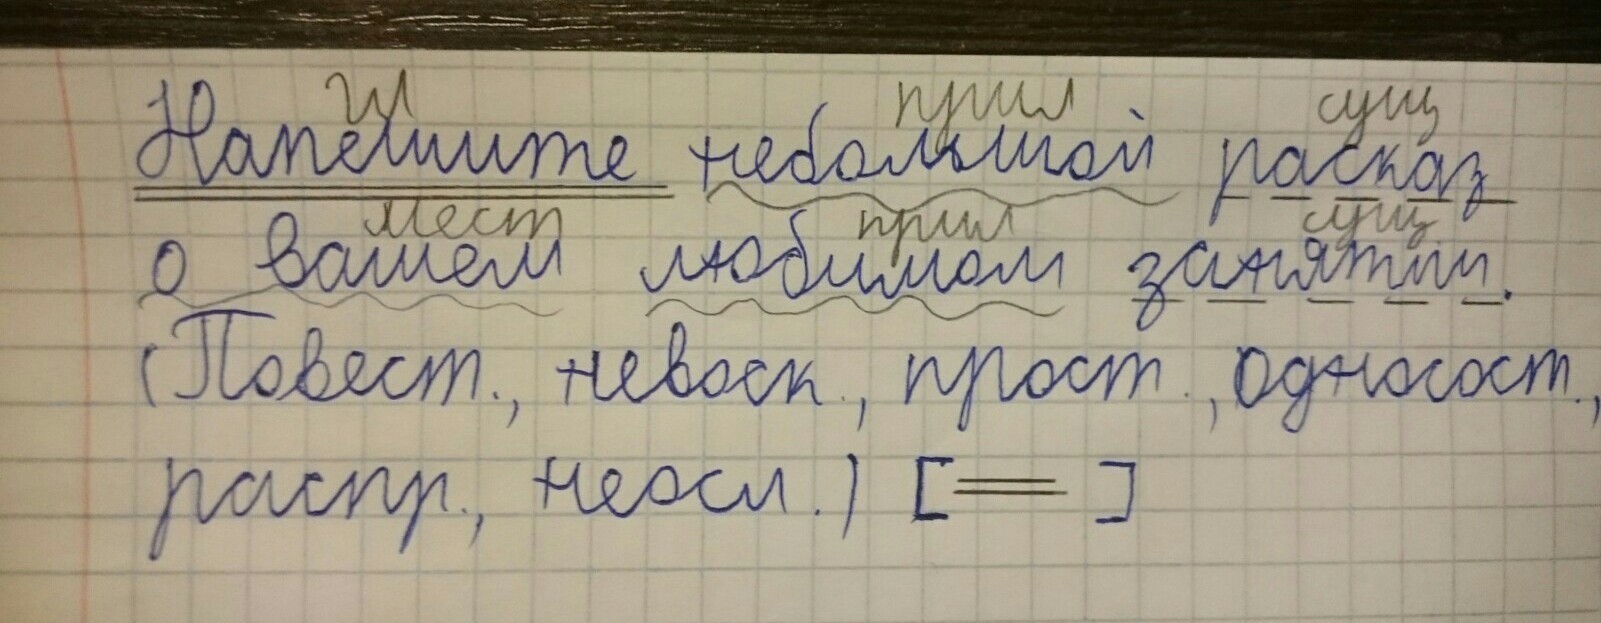 гл прил сущ
Напешите небольшой расказ
мест прил сущ
о вашем любимом занятии.
(Повест., невоск., прост., односост.,
распр., неосл.) [══]